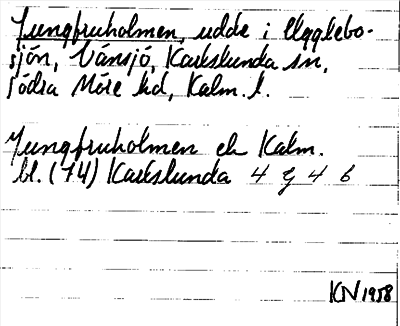 Jungfruholmen, udde i Ugglebo-
sjön, Vänsjö, Karlslunda sn,
södra Möre hd, Kalm. l.
Jungfruholmen ek Kalm.
bl. (74) Karlslunda 4 g 4 b
KN 1958